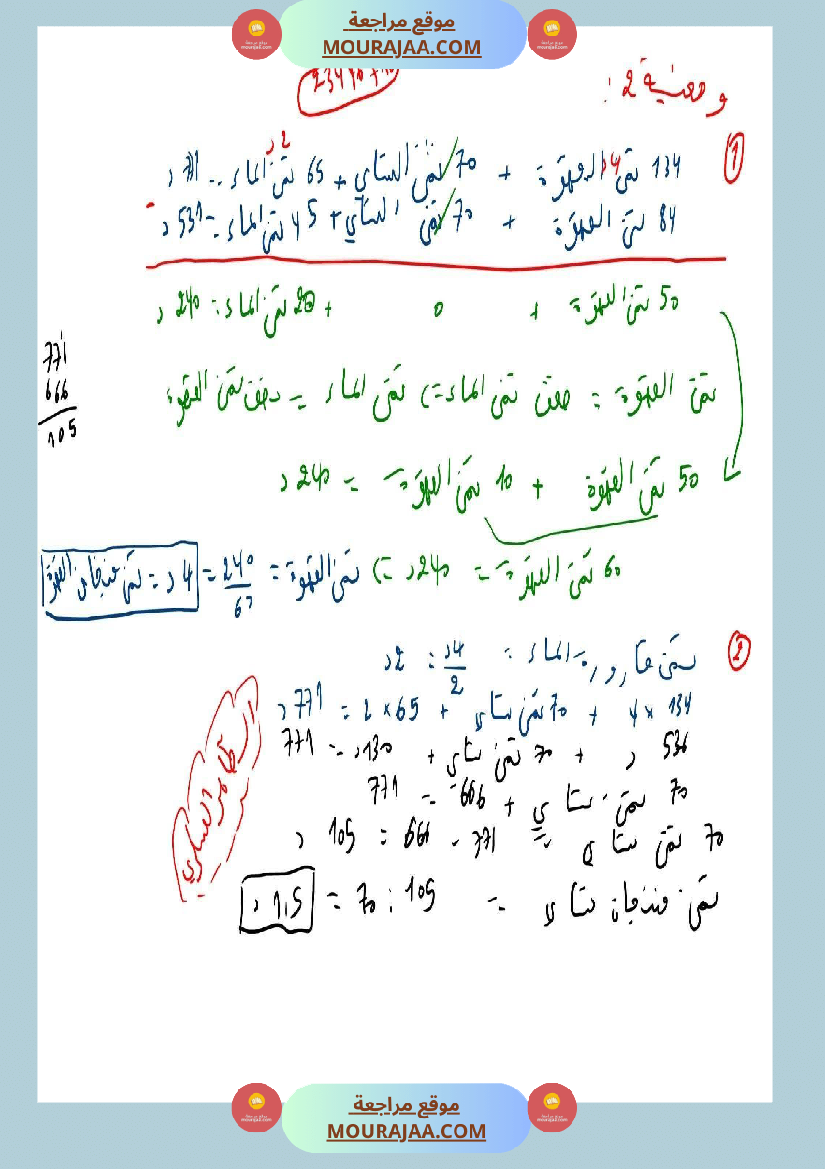 موقع مراجعة
MOURAJAA.COM
وضعية 2:
① 134 ثمن القهوة + 70 ثمن الشاي + 65 ثمن الماء = 771 د
84 ثمن القهوة + 70 ثمن الشاي + 45 ثمن الماء = 531 د
50 ثمن القهوة + 0 + 20 ثمن الماء = 240 د
ثمن القهوة = ضعف ثمن الماء => ثمن الماء = نصف ثمن القهوة
771
666
105
50 ثمن القهوة + 10 ثمن القهوة = 240 د
60 ثمن القهوة = 240 د => ثمن القهوة = 240/60 = 4 د = ثمن فنجان القهوة
② ثمن قارورة الماء = 4د/2 = 2 د
134 × 4 + 70 ثمن شاي + 65 × 2 = 771 د
536 د + 70 ثمن شاي + 130 د = 771
70 ثمن شاي + 666 = 771
70 ثمن شاي = 771 - 666 = 105 د
ثمن فنجان شاي = 105 : 70 = 1,5 د
موقع مراجعة
MOURAJAA.COM